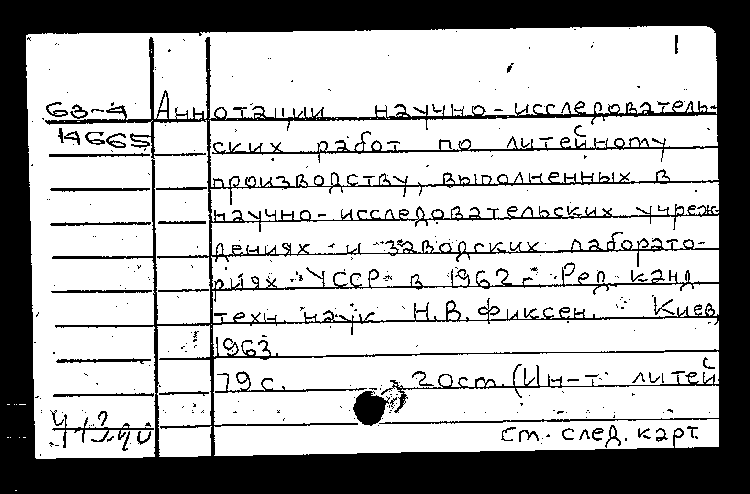 1
63-4 Аннотации научно-исследователь-
14665 ских работ по литейному
производству, выполненных в
научно-исследовательских учреж-
дениях и заводских лаборато-
риях УССР в 1962 г. Ред. канд.
техн. наук Н.В. Фиксен. Киев,
1963.
79 с. 20 см. (Ин-т литей
см. след. карт.